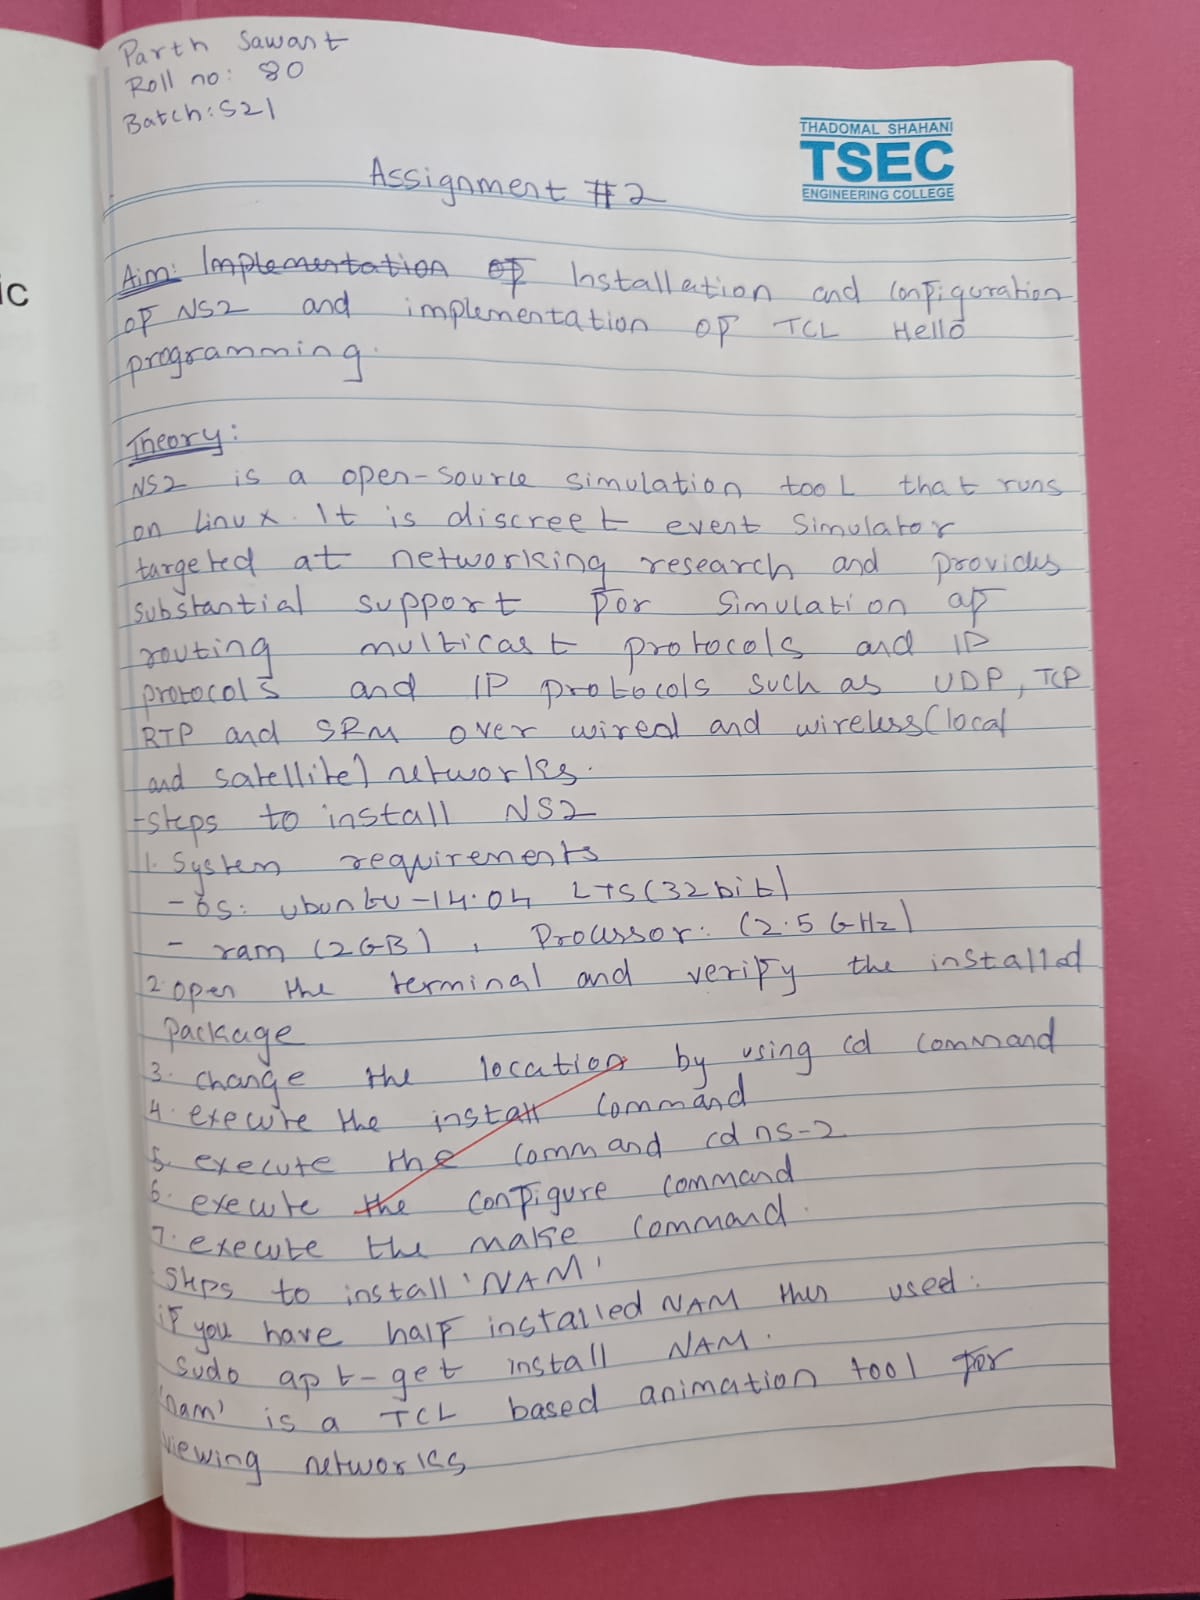 Parth Sawant
Roll no: 80
Batch: S21
THADOMAL SHAHANI
TSEC
ENGINEERING COLLEGE
Assignment #2
ic
Aim: Implementation of Installation and configuration
of NS2 and implementation of TCL Hello
programming.
Theory:
NS2 is a open-source simulation tool that runs
on linux. It is discreet event simulator
targeted at networking research and provides
substantial support for simulation of
routing multicast protocols and IP
protocols and IP protocols such as UDP, TCP
RTP and SRM over wired and wireless (local
and satellite) networks.
-steps to install NS2
1. System requirements
- os: ubuntu -14.04 LTS (32bit)
- ram (2GB), Processor: (2.5 GHz)
2. open the terminal and verify the installed
package
3. change the location by using cd command
4. execute the install command
5. execute the command cd ns-2
6. execute the configure command
7. execute the make command.
Steps to install 'NAM'
if you have half installed NAM then used:
sudo apt-get install NAM.
'nam' is a TCL based animation tool for
viewing networks